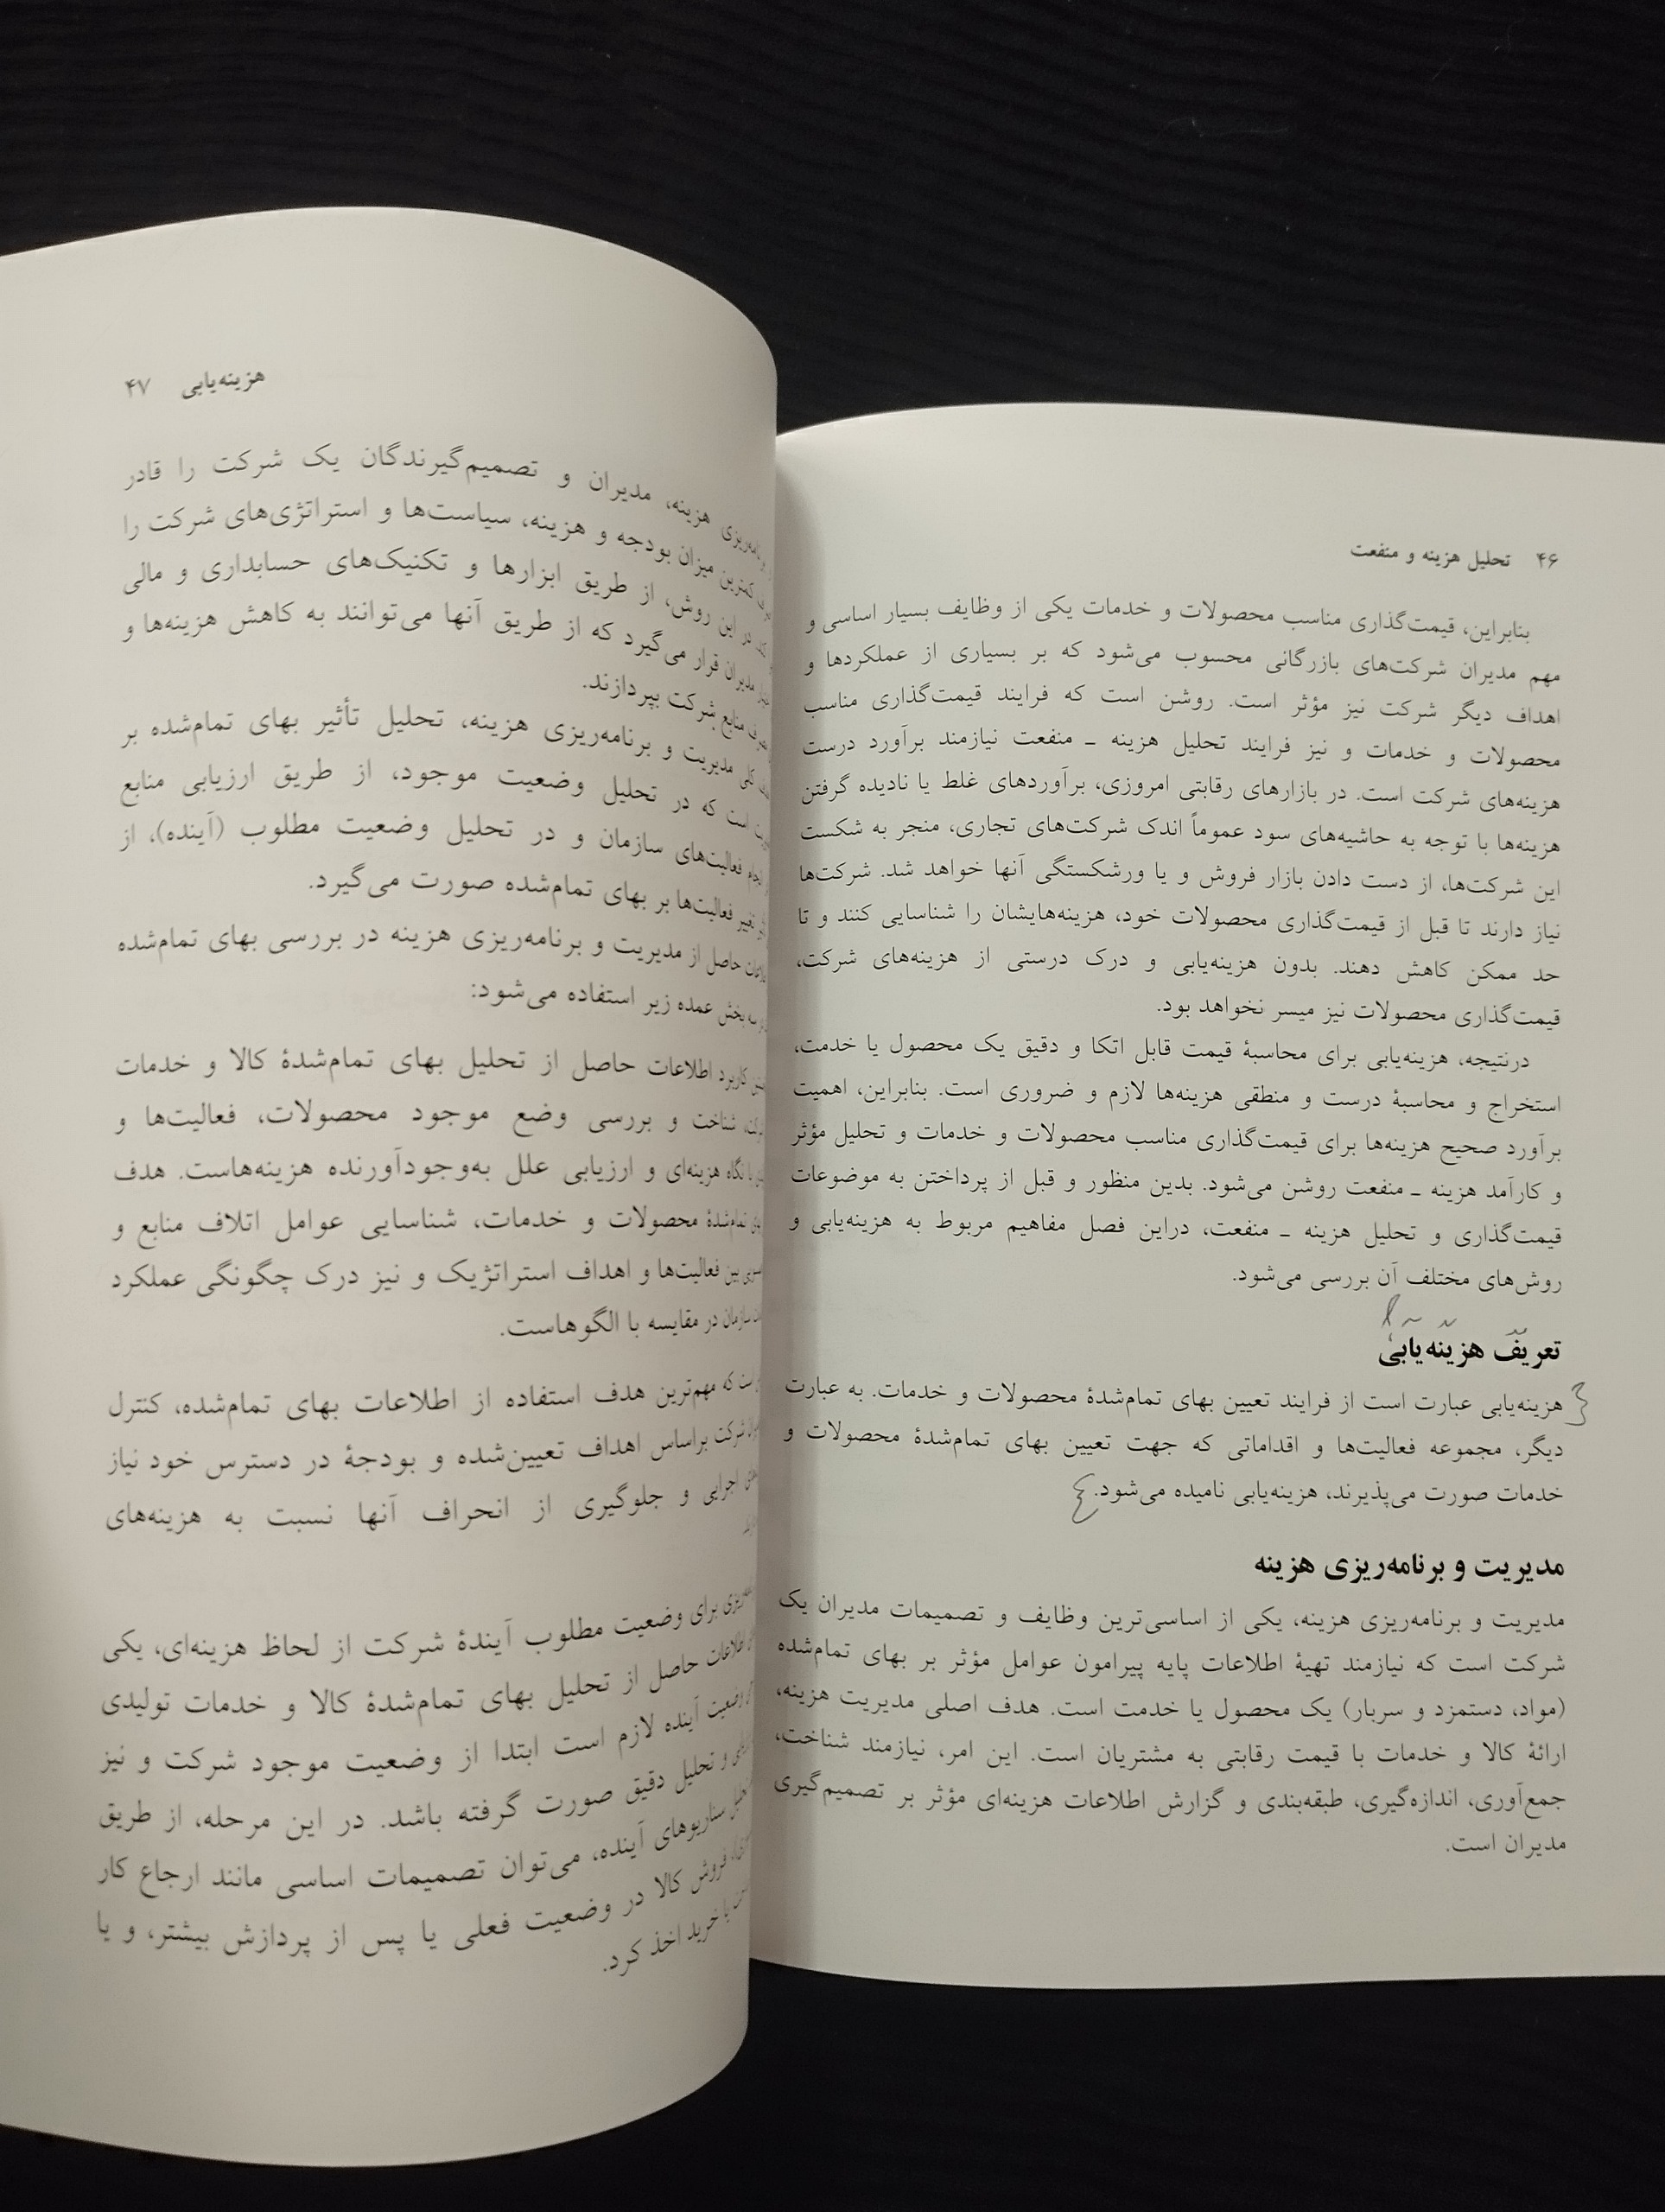 ۴۶ تحلیل هزینه و منفعت
بنابراین، قیمت‌گذاری مناسب محصولات و خدمات یکی از وظایف بسیار اساسی و
مهم مدیران شرکت‌های بازرگانی محسوب می‌شود که بر بسیاری از عملکردها و
اهداف دیگر شرکت نیز مؤثر است. روشن است که فرایند قیمت‌گذاری مناسب
محصولات و خدمات و نیز فرایند تحلیل هزینه ـ منفعت نیازمند برآورد درست
هزینه‌های شرکت است. در بازارهای رقابتی امروزی، برآوردهای غلط یا نادیده گرفتن
هزینه‌ها با توجه به حاشیه‌های سود عموماً اندک شرکت‌های تجاری، منجر به شکست
این شرکت‌ها، از دست دادن بازار فروش و یا ورشکستگی آنها خواهد شد. شرکت‌ها
نیاز دارند تا قبل از قیمت‌گذاری محصولات خود، هزینه‌هایشان را شناسایی کنند و تا
حد ممکن کاهش دهند. بدون هزینه‌یابی و درک درستی از هزینه‌های شرکت،
قیمت‌گذاری محصولات نیز میسر نخواهد بود.
درنتیجه، هزینه‌یابی برای محاسبهٔ قیمت قابل اتکا و دقیق یک محصول یا خدمت،
استخراج و محاسبهٔ درست و منطقی هزینه‌ها لازم و ضروری است. بنابراین، اهمیت
برآورد صحیح هزینه‌ها برای قیمت‌گذاری مناسب محصولات و خدمات و تحلیل مؤثر
و کارآمد هزینه ـ منفعت روشن می‌شود. بدین منظور و قبل از پرداختن به موضوعات
قیمت‌گذاری و تحلیل هزینه ـ منفعت، دراین فصل مفاهیم مربوط به هزینه‌یابی و
روش‌های مختلف آن بررسی می‌شود.
تعریف هزینه‌یابی
هزینه‌یابی عبارت است از فرایند تعیین بهای تمام‌شدهٔ محصولات و خدمات. به عبارت
دیگر، مجموعه فعالیت‌ها و اقداماتی که جهت تعیین بهای تمام‌شدهٔ محصولات و
خدمات صورت می‌پذیرند، هزینه‌یابی نامیده می‌شود.
مدیریت و برنامه‌ریزی هزینه
مدیریت و برنامه‌ریزی هزینه، یکی از اساسی‌ترین وظایف و تصمیمات مدیران یک
شرکت است که نیازمند تهیهٔ اطلاعات پایه پیرامون عوامل مؤثر بر بهای تمام‌شده
(مواد، دستمزد و سربار) یک محصول یا خدمت است. هدف اصلی مدیریت هزینه،
ارائهٔ کالا و خدمات با قیمت رقابتی به مشتریان است. این امر، نیازمند شناخت،
جمع‌آوری، اندازه‌گیری، طبقه‌بندی و گزارش اطلاعات هزینه‌ای مؤثر بر تصمیم‌گیری
مدیران است.
هزینه‌یابی ۴۷
هزینه، مدیران و تصمیم‌گیرندگان یک شرکت را قادر
کمترین میزان بودجه و هزینه، سیاست‌ها و استراتژی‌های شرکت را
در این روش، از طریق ابزارها و تکنیک‌های حسابداری و مالی
مدیران قرار می‌گیرد که از طریق آنها می‌توانند به کاهش هزینه‌ها و
منابع شرکت بپردازند.
کلی مدیریت و برنامه‌ریزی هزینه، تحلیل تأثیر بهای تمام‌شده بر
است که در تحلیل وضعیت موجود، از طریق ارزیابی منابع
انجام فعالیت‌های سازمان و در تحلیل وضعیت مطلوب (آینده)، از
تغییر فعالیت‌ها بر بهای تمام‌شده صورت می‌گیرد.
حاصل از مدیریت و برنامه‌ریزی هزینه در بررسی بهای تمام‌شده
بخش عمده زیر استفاده می‌شود:
کاربرد اطلاعات حاصل از تحلیل بهای تمام‌شدهٔ کالا و خدمات
شناخت و بررسی وضع موجود محصولات، فعالیت‌ها و
نگاه هزینه‌ای و ارزیابی علل به‌وجودآورنده هزینه‌هاست. هدف
تمام‌شدهٔ محصولات و خدمات، شناسایی عوامل اتلاف منابع و
بین فعالیت‌ها و اهداف استراتژیک و نیز درک چگونگی عملکرد
سازمان در مقایسه با الگوهاست.
است که مهم‌ترین هدف استفاده از اطلاعات بهای تمام‌شده، کنترل
شرکت براساس اهداف تعیین‌شده و بودجهٔ در دسترس خود نیاز
اجرایی و جلوگیری از انحراف آنها نسبت به هزینه‌های
برای وضعیت مطلوب آیندهٔ شرکت از لحاظ هزینه‌ای، یکی
اطلاعات حاصل از تحلیل بهای تمام‌شدهٔ کالا و خدمات تولیدی
وضعیت آینده لازم است ابتدا از وضعیت موجود شرکت و نیز
و تحلیل دقیق صورت گرفته باشد. در این مرحله، از طریق
سناریوهای آینده، می‌توان تصمیمات اساسی مانند ارجاع کار
فروش کالا در وضعیت فعلی یا پس از پردازش بیشتر، و یا
یا خرید اخذ کرد.